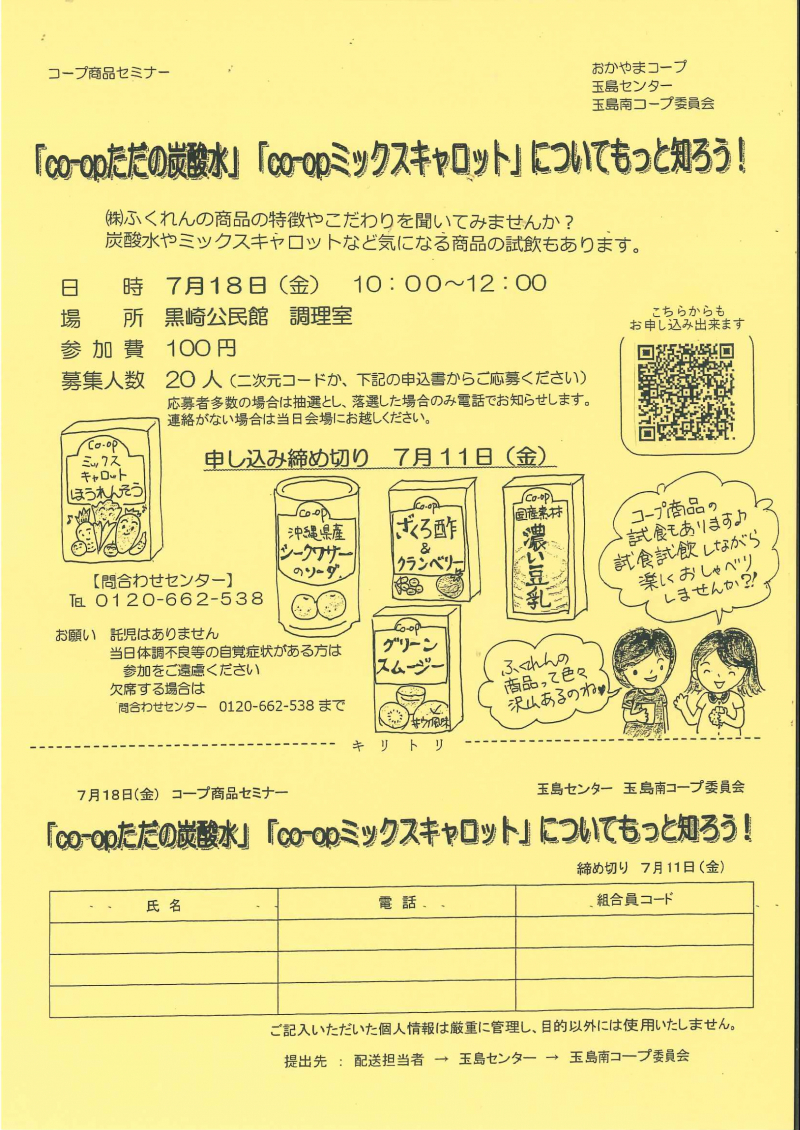 コープ商品セミナー
おかやまコープ
玉島センター
玉島南コープ委員会
「co-opただの炭酸水」「co-opミックスキャロット」についてもっと知ろう！
㈱ふくれんの商品の特徴やこだわりを聞いてみませんか？
炭酸水やミックスキャロットなど気になる商品の試飲もあります。
日　時　7月18日（金）　10：00～12：00
場　所　黒崎公民館　調理室
参加費　100円
募集人数　20人（二次元コードか、下記の申込書からご応募ください）
応募者多数の場合は抽選とし、落選した場合のみ電話でお知らせします。
連絡がない場合は当日会場にお越しください。
こちらからも
お申し込み出来ます
申し込み締め切り　7月11日（金）
co-op
ミックス
キャロット
ほうれんそう
co-op
沖縄県産
シークワサー
のソーダ
co-op
ざくろ酢
&
クランベリー
co-op
国産素材
濃い豆乳
コープ商品の
試食もあります♪
試食試飲しながら
楽しくおしゃべり
しませんか?!
【問合わせセンター】
℡ 0120-662-538
co-op
グリーン
スムージー
キウイ風味
ふくれんの
商品って色々
沢山あるのね♥
お願い　託児はありません
当日体調不良等の自覚症状がある方は
参加をご遠慮ください
欠席する場合は
問合わせセンター　0120-662-538 まで
キリトリ
7月18日(金)　コープ商品セミナー
玉島センター　玉島南コープ委員会
「co-opただの炭酸水」「co-opミックスキャロット」についてもっと知ろう！
締め切り　7月11日（金）
氏 名　電 話　組合員コード
ご記入いただいた個人情報は厳重に管理し、目的以外には使用いたしません。
提出先 ： 配送担当者 → 玉島センター → 玉島南コープ委員会